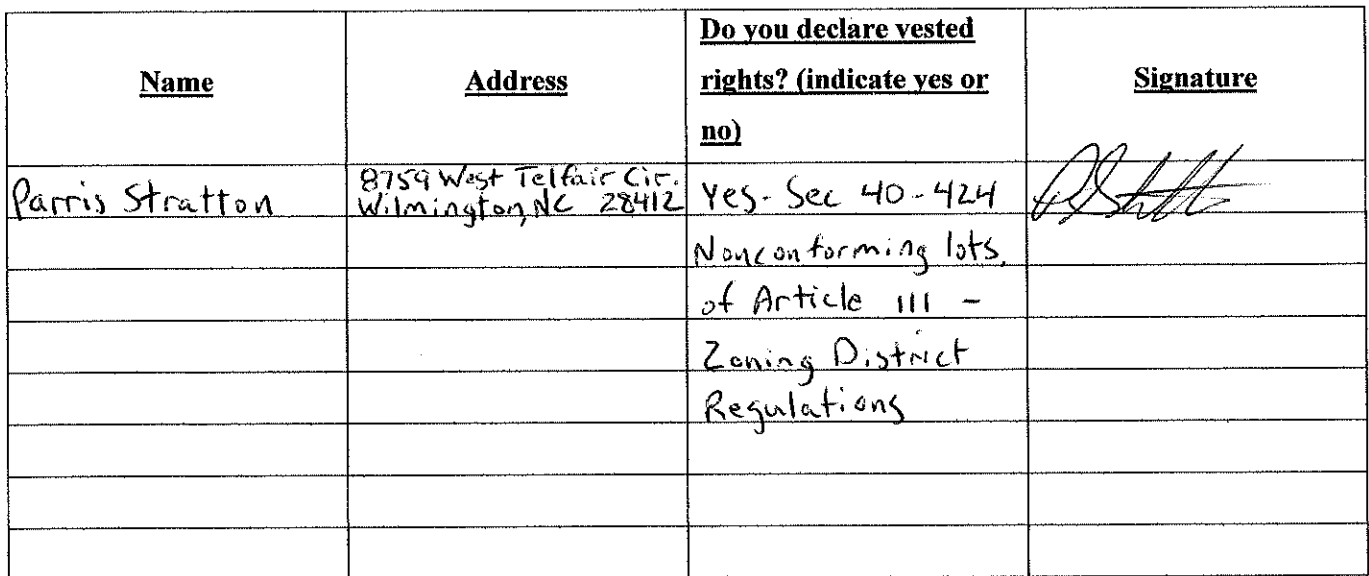 Name
Address
Do you declare vested
rights? (indicate yes or
no)
Signature
Parris Stratton
8759 West Telfair Cir.
Wilmington, NC 28412
Yes - Sec 40-424
Nonconforming lots,
of Article III -
Zoning District
Regulations